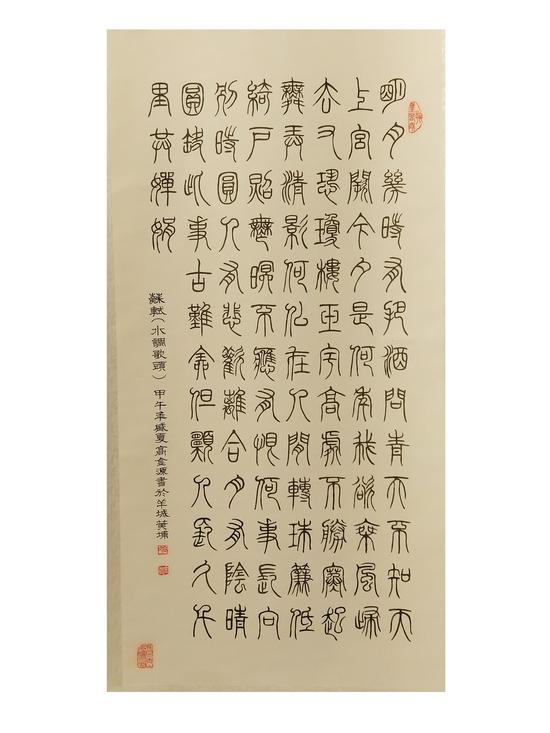 明月幾時有把酒問青天不知天
上宮闕今夕是何年我欲乘風歸
去又恐瓊樓玉宇高處不勝寒起
舞弄清影何似在人間轉珠簾低
綺戶照無眠不應有恨何事長向
別時圓人有悲歡離合月有陰晴
圓缺此事古難全但願人長久千
里共嬋娟
蘇軾（水調歌頭）甲午年盛夏高金源書於羊城黃埔